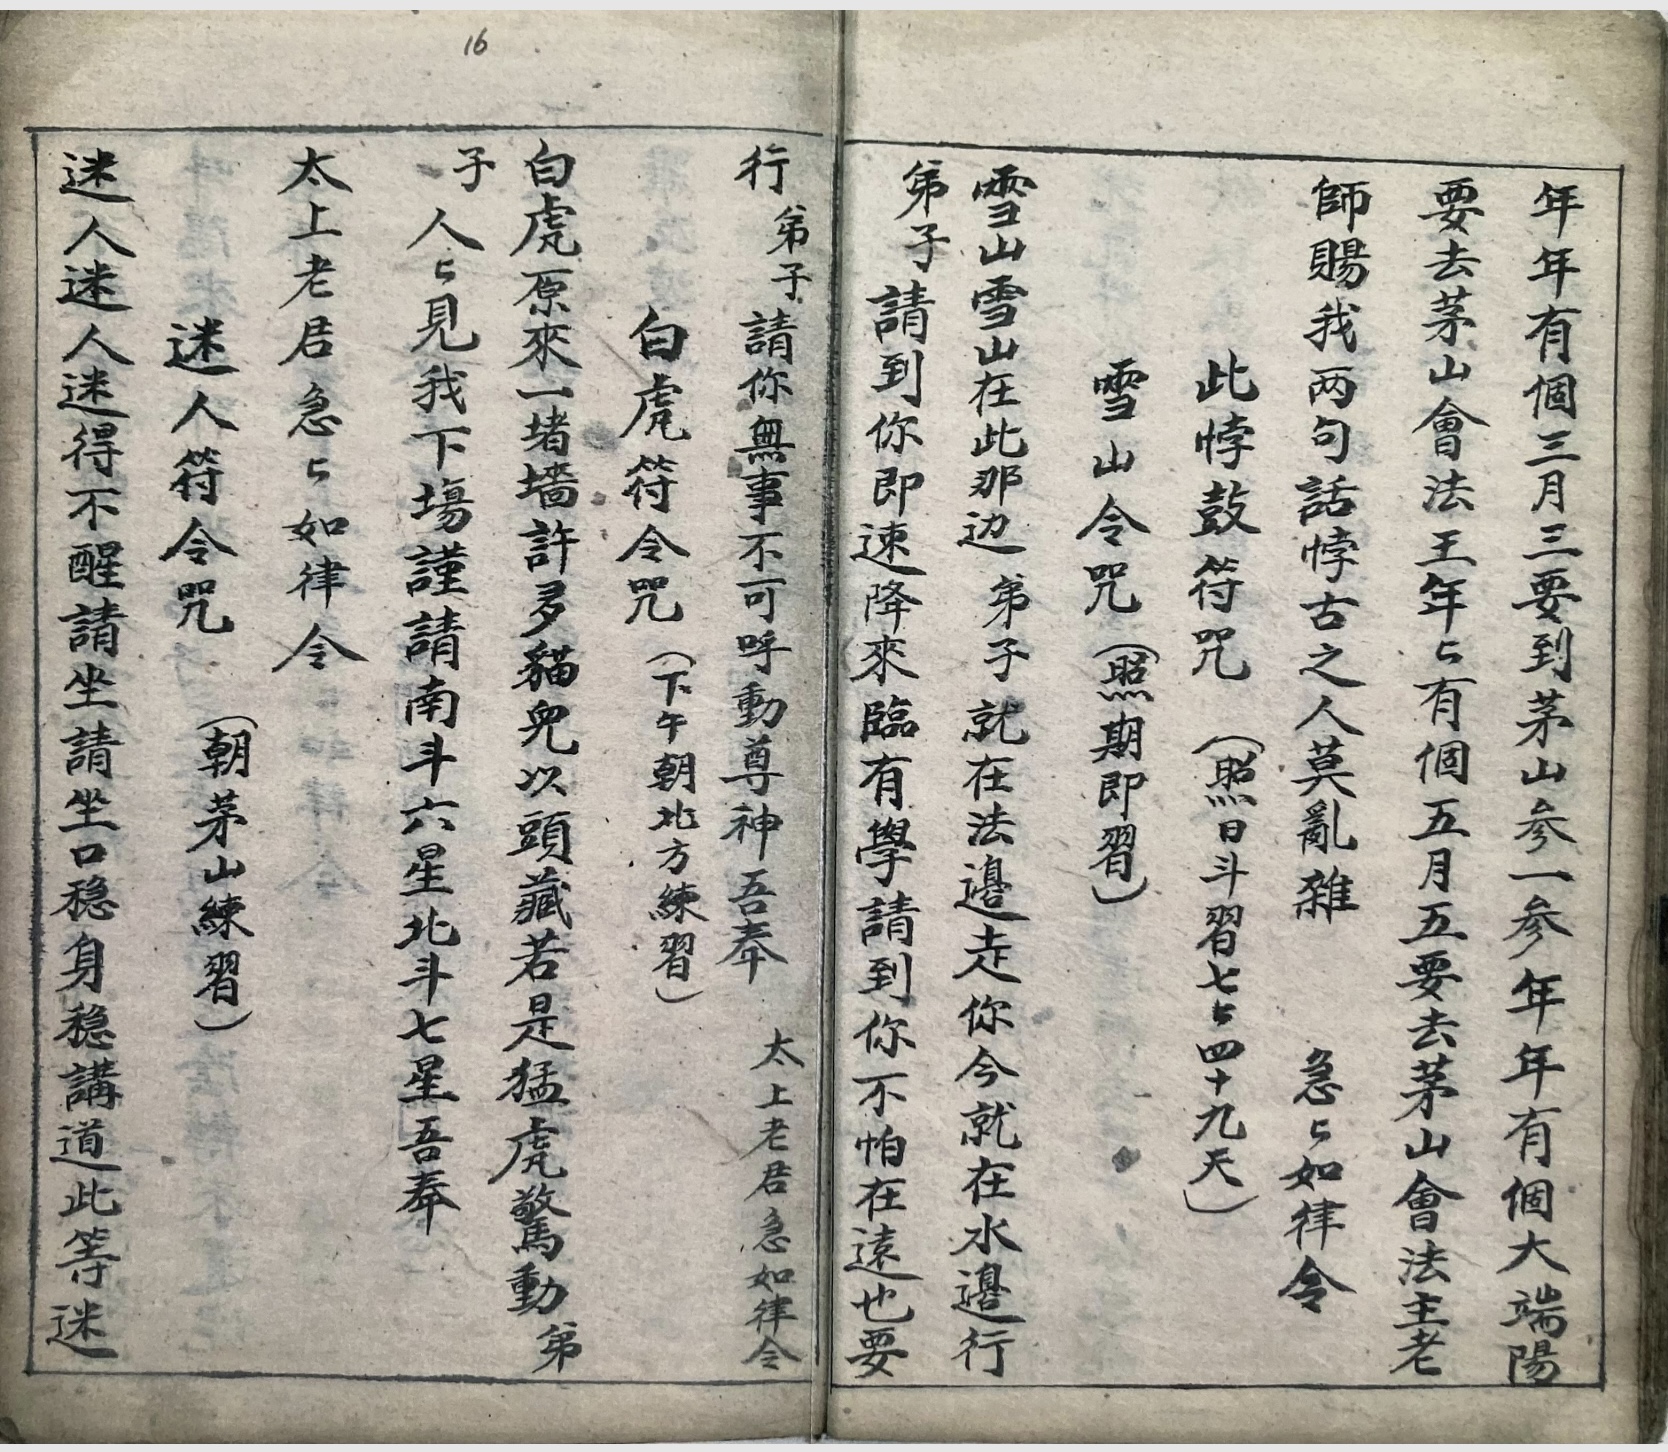 年年有個三月三要到茅山参一参年年有個大端陽
要去茅山會法王年〻有個五月五要去茅山會法主老
師賜我两句話悖古之人莫亂雜　急〻如律令
此悖鼓符咒（照日斗習七〻四十九天）
雪山令咒（照期即習）
雪山雪山在此那边弟子就在法邊走你今就在水邊行
弟子請到你即速降來臨有學請到你不怕在遠也要
行弟子請你無事不可呼動尊神吾奉　太上老君急如律令
白虎符令咒（下午朝北方練習）
白虎原來一堵墻許多貓兒以頭藏若是猛虎驚動弟
子人〻見我下塲謹請南斗六星北斗七星吾奉
太上老君急〻如律令
迷人符令咒（朝茅山練習）
迷人迷人迷得不醒請坐請坐口稳身稳講道此等迷
16